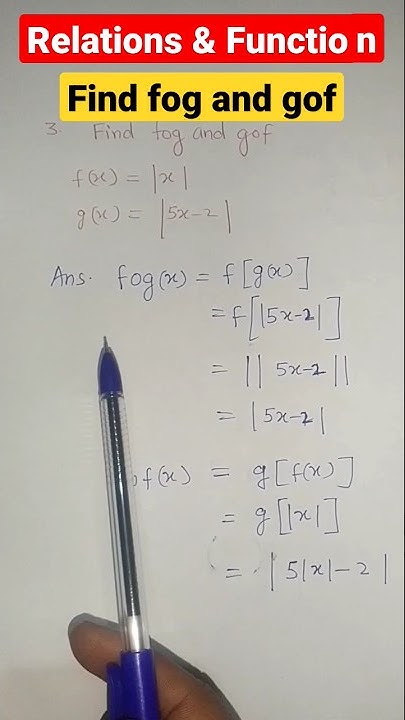 Relations & Functio n
Find fog and gof
3. Find fog and gof
f(x) = |x|
g(x) = |5x-2|
Ans. fog(x) = f[g(x)]
= f[|5x-2|]
= || 5x-2 ||
= |5x-2|
of(x) = g[f(x)]
= g[|x|]
= | 5|x| - 2 |